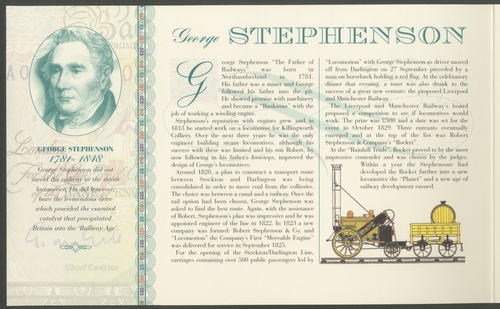 George STEPHENSON
GEORGE STEPHENSON
1781-1848
George Stephenson did not
invent the railway or the steam
locomotive. He did, however,
have the tremendous drive
which provided the essential
catalyst that precipitated
Britain into the 'Railway Age'.
Chief Cashier
George Stephenson "The Father of
Railways" was born in
Northumberland in 1781.
His father was a miner and George
followed his father into the pit.
He showed promise with machinery
and became a "Banksman" with the
job of working a winding engine.
Stephenson's reputation with engines grew and in
1813 he started work on a locomotive for Killingworth
Colliery. Over the next three years he was the only
engineer building steam locomotives, although his
success with these was limited and his son Robert, by
now following in his father's footsteps, improved the
design of George's locomotives.
Around 1820, a plan to construct a transport route
between Stockton and Darlington was being
consolidated in order to move coal from the collieries.
The choice was between a canal and a railway. Once the
rail option had been chosen, George Stephenson was
asked to find the best route. Again, with the assistance
of Robert, Stephenson's plan was impressive and he was
appointed engineer of the line in 1822. In 1823 a new
company was formed. Robert Stephenson & Co, and
"Locomotion" the Company's First "Moveable Engine"
was delivered for service in September 1825.
For the opening of the Stockton/Darlington Line,
carriages containing over 500 public passengers led by
"Locomotion" with George Stephenson as driver moved
off from Darlington on 27 September preceded by a
man on horseback holding a red flag. At the celebratory
dinner that evening, a toast was also drunk to the
success of a great new venture; the proposed Liverpool
and Manchester Railway.
The Liverpool and Manchester Railway's board
proposed a competition to see if locomotives would
work. The prize was £500 and a date was set for the
event in October 1829. Three entrants eventually
emerged and at the top of the list was Robert
Stephenson & Company's "Rocket".
At the "Rainhill Trials", Rocket proved to be the most
impressive contender and was chosen by the judges.
Within a year the Stephensons had
developed the Rocket further into a new
locomotive the "Planet" and a new age of
railway development ensued.